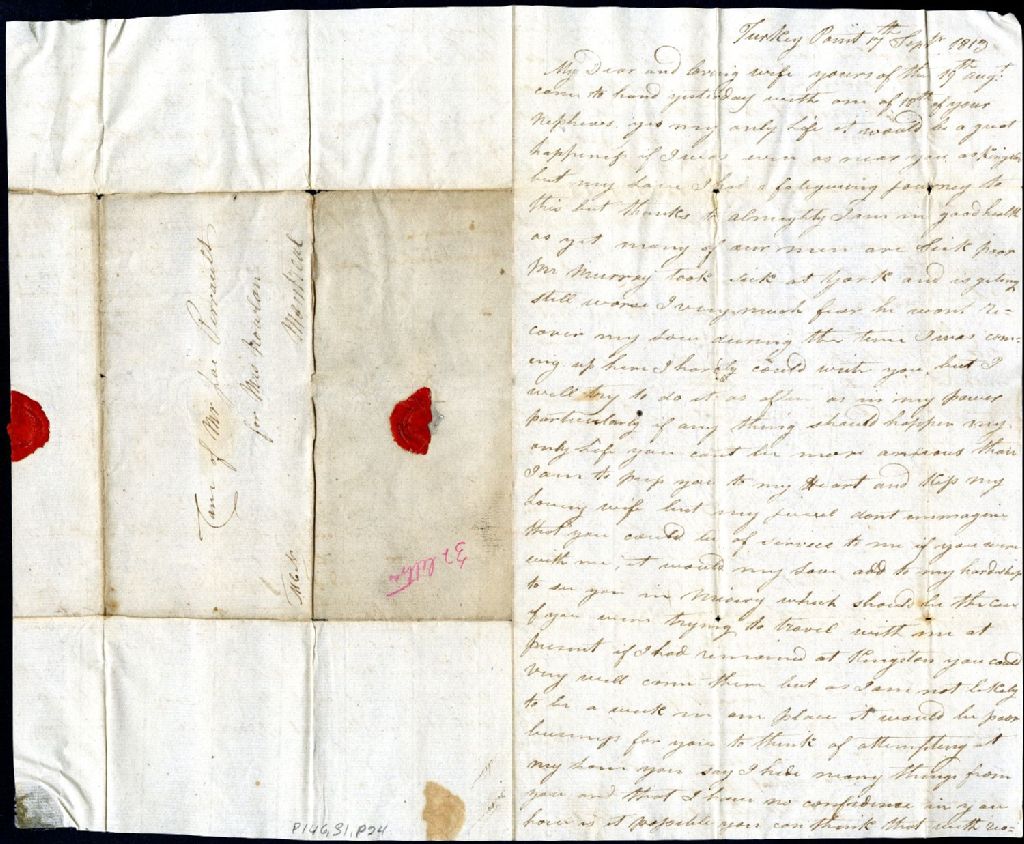 Turkey Point 17th Septr 1813
My Dear and loving wife yours of the 19th augt
came to hand yesterday with one of 18th of your
Nephews, yes my only life it would be a great
happiness if I was even as near you as Kingston
but my love I had a fatiguing journey to
this but thanks to almighty I am in good health
as yet many of our men are Sick poor
Mr Murray took sick at York and is geting
still worse I very much fear he wont re-
cover my love during the time I was com-
ing up here I hardly could write you, but I
will try to do it as often as in my power
particularly if any thing should happen my
only life you cant be more anxious than
I am to press you to my Heart and Kiss my
loving wife but my jewel dont immagine
that you could be of service to me if you were
with me, it would my love add to my hardships
to see you in misery which should be the case
if you were trying to travel with me at
present if I had remained at Kingston you could
very well come there but as I am not likely
to be a week in one place it would be poor
business for you to think of attempting it
my love you say I hide many things from
you and that I have no confidence in you
how is it possible you can think that with rea-
Care of Mr Jos Perrault
for Mrs
Montreal
32 letter
P146,S1,P24